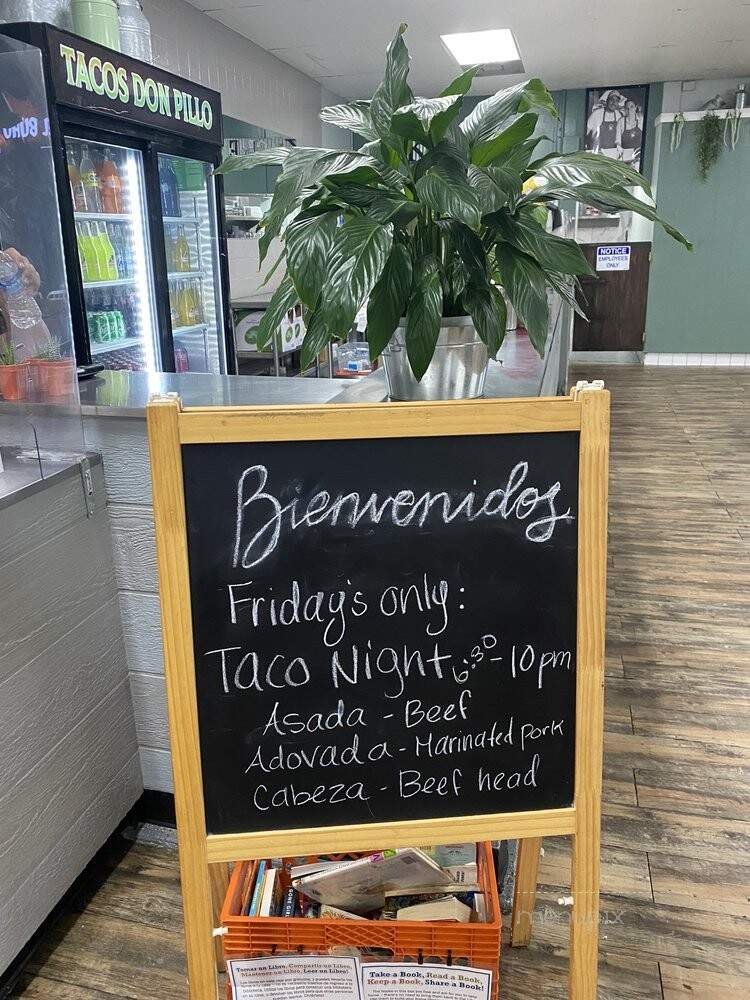 TACOS DON PILLO
NOTICE
EMPLOYEES
ONLY
Bienvenidos
Friday's only:
Taco Night 6:30-10pm
Asada - Beef
Adovada - Marinated pork
Cabeza - Beef head
GONE GIRL
Tomar un Libro, Compartir un Libro,
Mantener un Libro, Leer un Libro!
Take a Book, Read a Book,
Keep a Book, Share a Book!